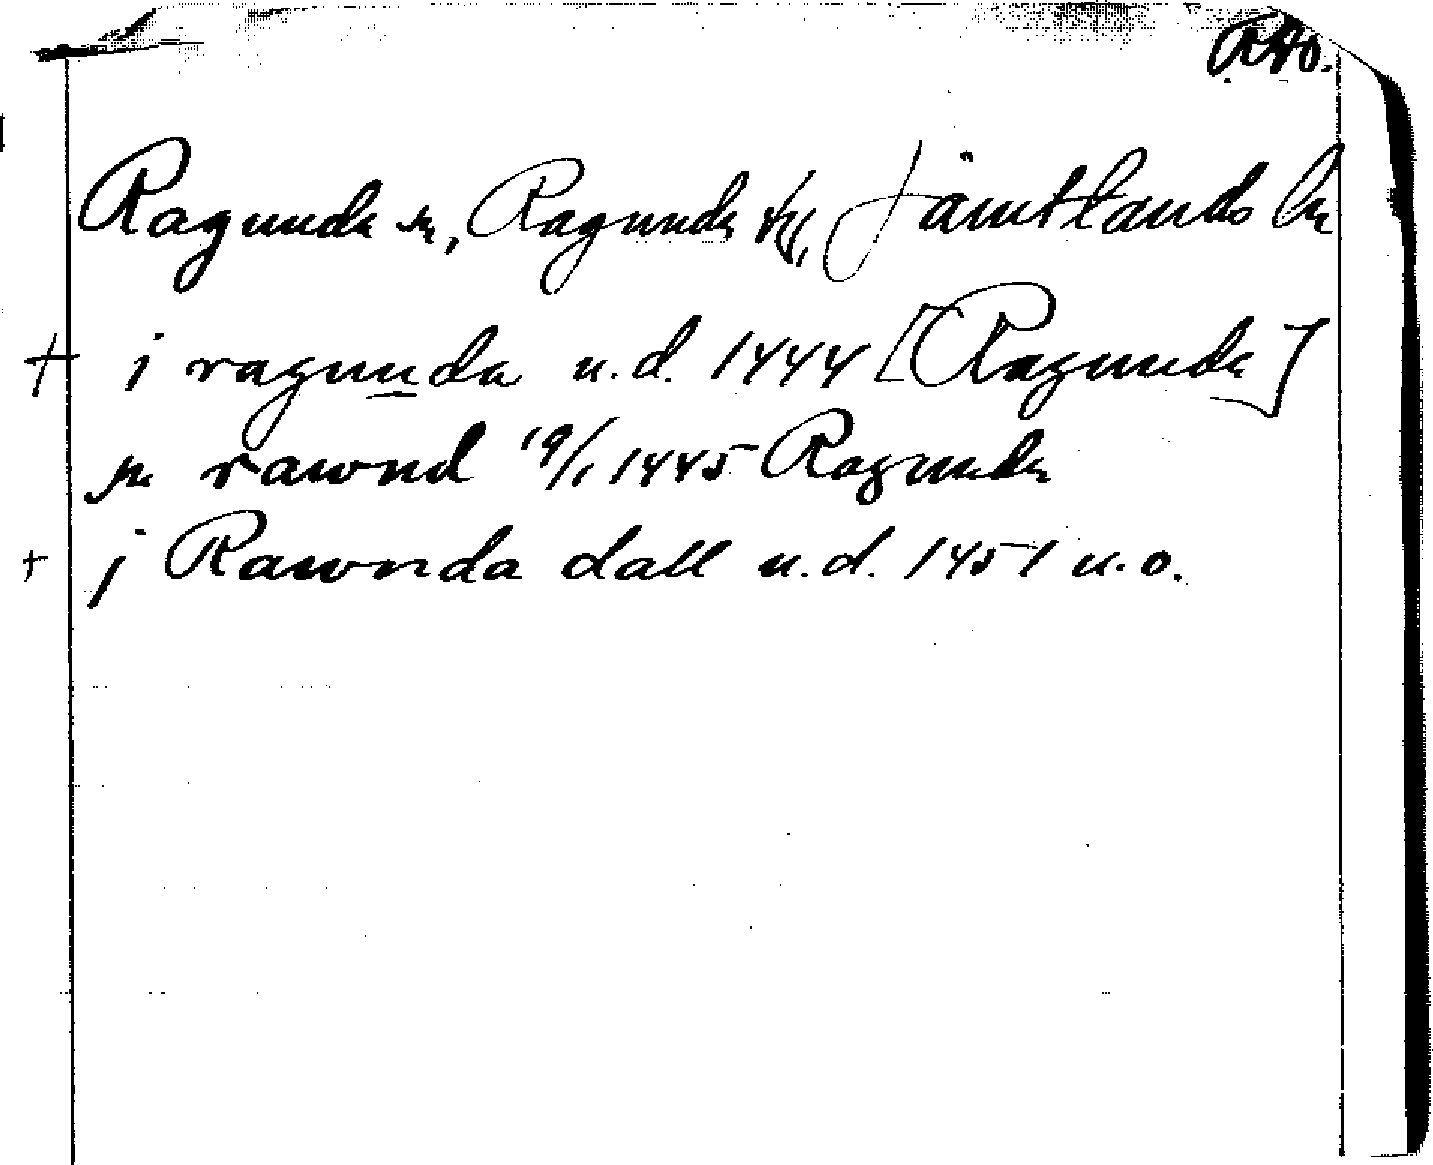 RAö.
Ragunda sn, Ragunda tg, Jämtlands län
+ i ragunda u.d. 1444 [Ragunda]
rawnd 19/1 1445 Ragunda
+ j Rawnda dall u.d. 1451 u.o.